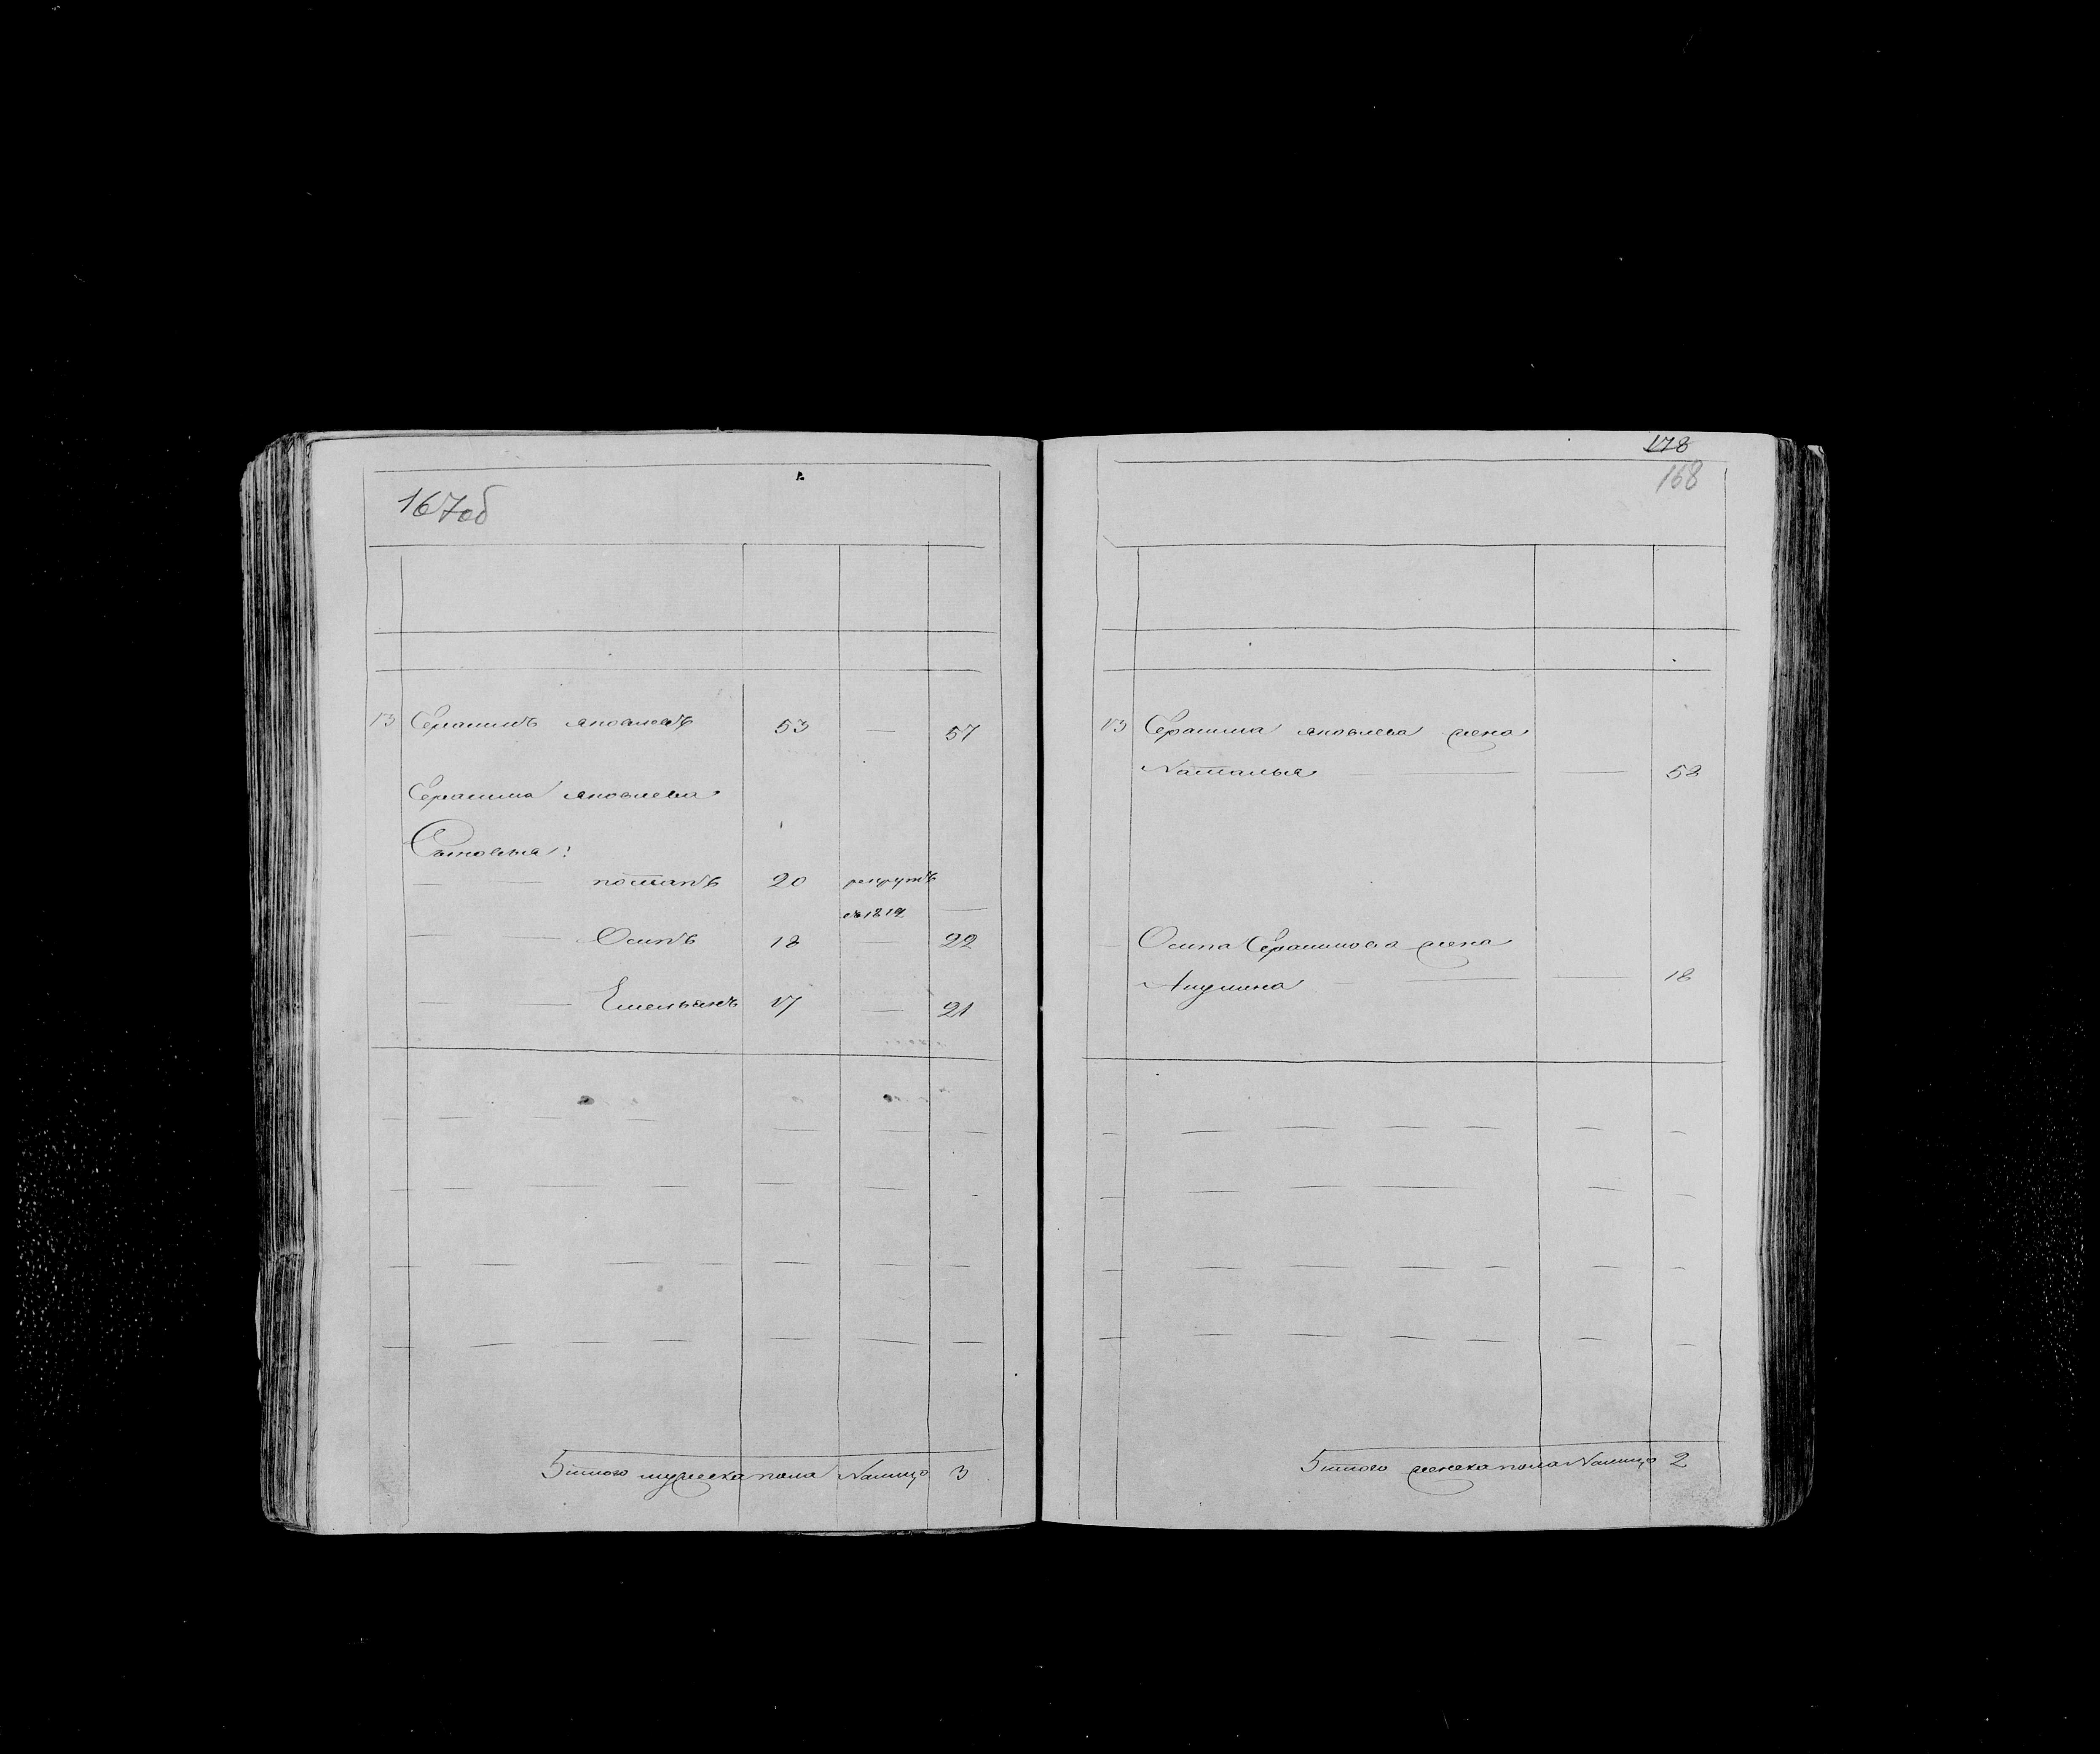 167об
13 Герасимъ яковлевъ 53 — 57
Герасима яковлева
Сыновья:
— — потапъ 20 рекрутъ
въ 1812 —
— — Осипъ 18 — 22
— — Емельянъ 17 — 21
Итого мужеска пола Налицо 3
178
168
13 Герасима яковлева жена
Наталья — — — 52
Осипа Герасимова жена
Акулина — — — 18
Итого женска пола Налицо 2